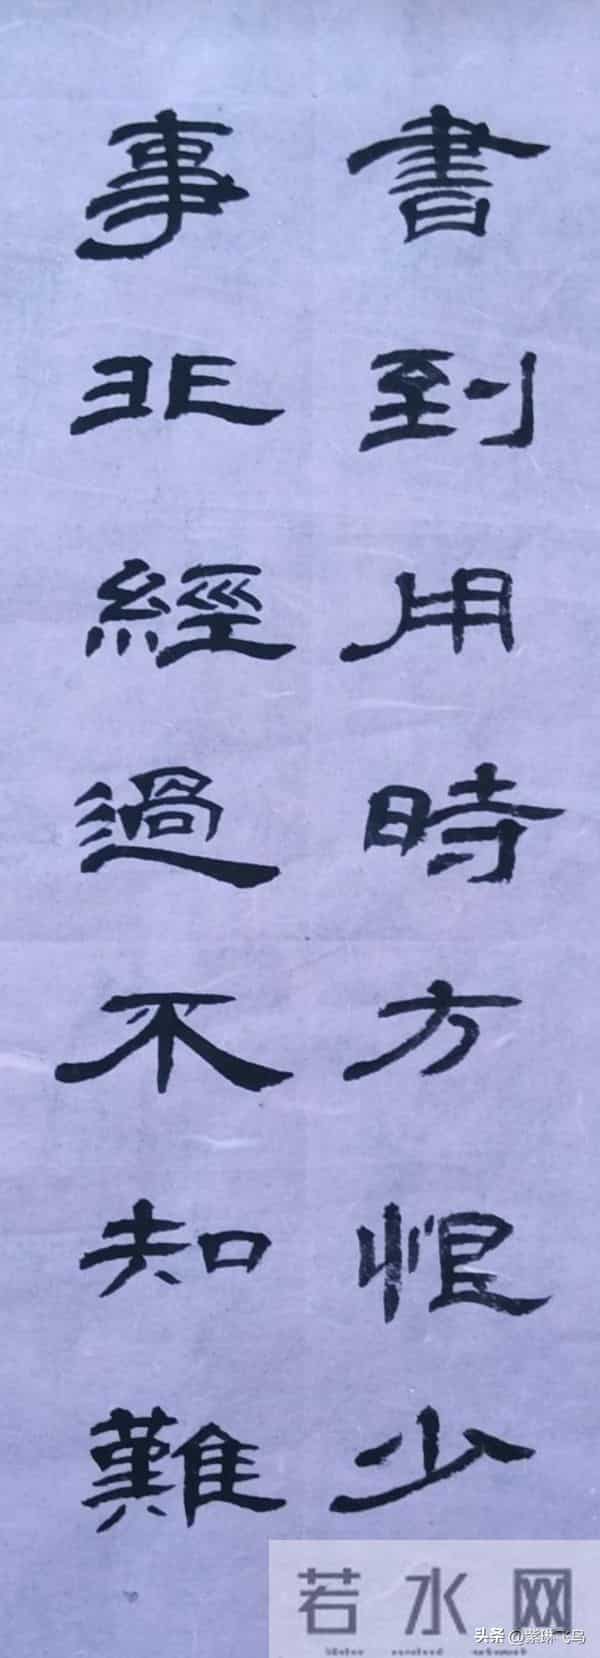 書到用時方恨少
事非經過不知難
若水网
头条@紫琳飞鸟